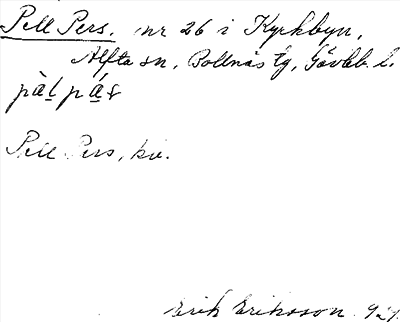 Pell Pers. nr 26 i Kyrkbyn,
Alfta sn, Bollnäs tg, Gävleb. l.
pàl pás
Pell Pers, kv.
Erik Eriksson